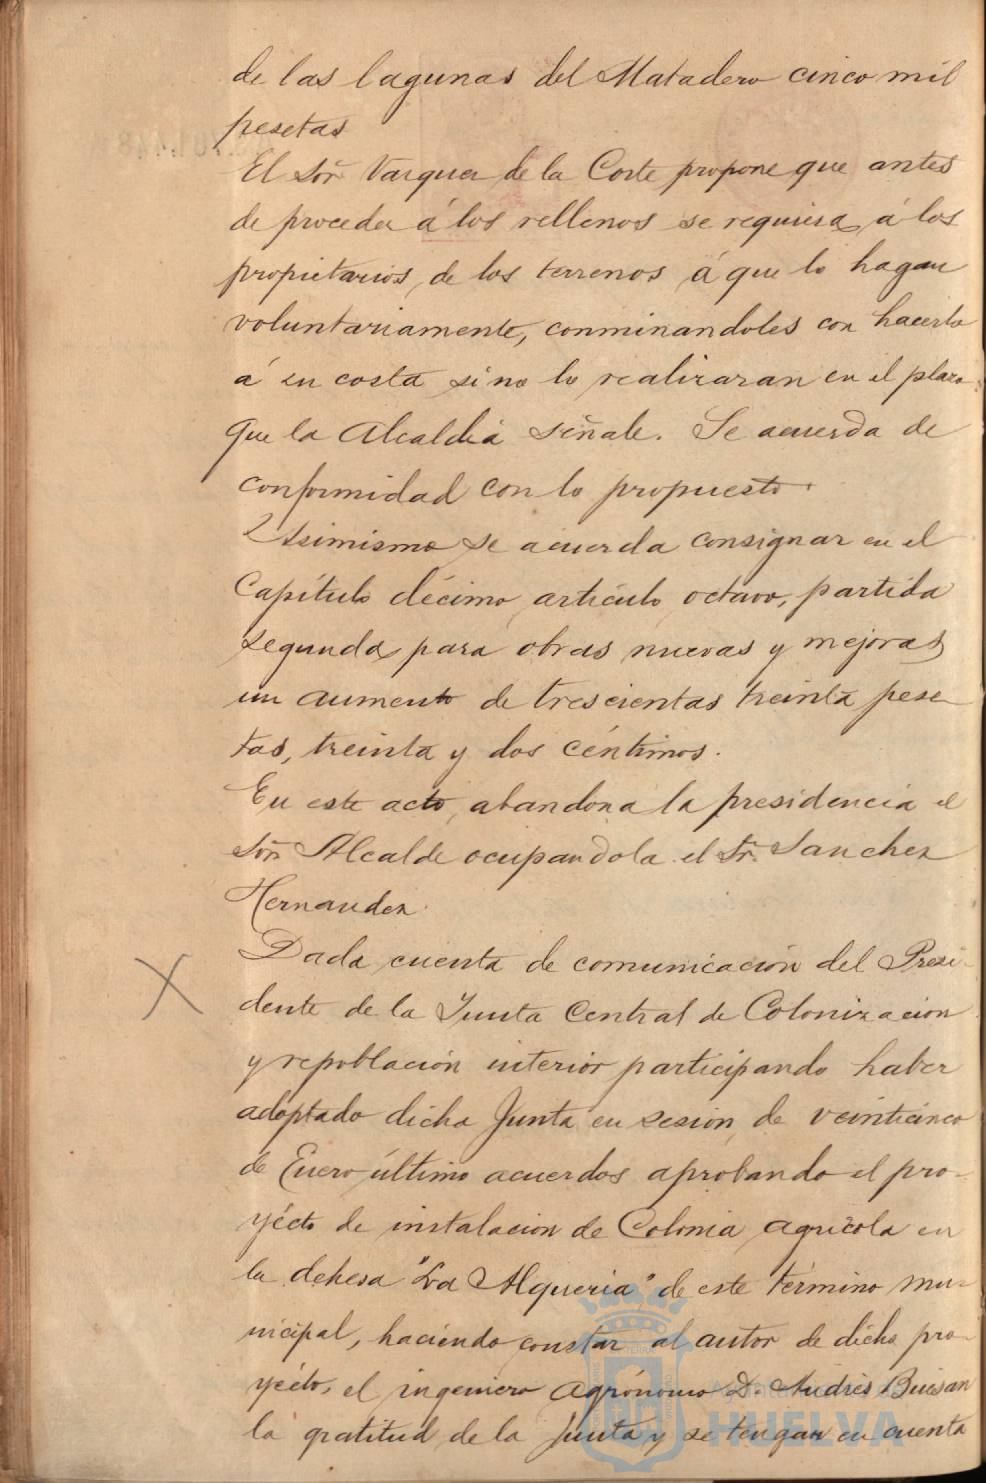 de las lagunas del Matadero cinco mil
pesetas
El Sor. Vazquez de la Corte propone que antes
de proceder á los rellenos se requiera á los
propietarios, de los terrenos á que lo hagan
voluntariamente, conminandoles con hacerlo
á su costa si no lo realizaran en el plazo
que la Alcaldia señale. Se acuerda de
conformidad con lo propuesto.
Asimismo se acuerda consignar en el
Capítulo décimo, artículo octavo, partida
segunda, para obras nuevas y mejoras
un aumento de trescientas treinta pese
tas, treinta y dos céntimos.
En este acto, abandona la presidencia el
Sor. Alcalde ocupandola el Sr. Sanchez
Hernandez.
Dada cuenta de comunicación del Presi-
dente de la Junta Central de Colonizacion
y repoblación interior participando haber
adoptado dicha Junta en sesion, de veinticinco
de Enero último acuerdos aprobando el pro-
yécto de instalacion de Colonia agrícola en
la dehesa "La Alqueria" de este término mu-
nicipal, haciendo constar al autor de dicho pro-
yécto, el ingeniero agrónomo D. Andrés Buisan
la gratitud de la Junta y se tengan en cuenta
HUELVA